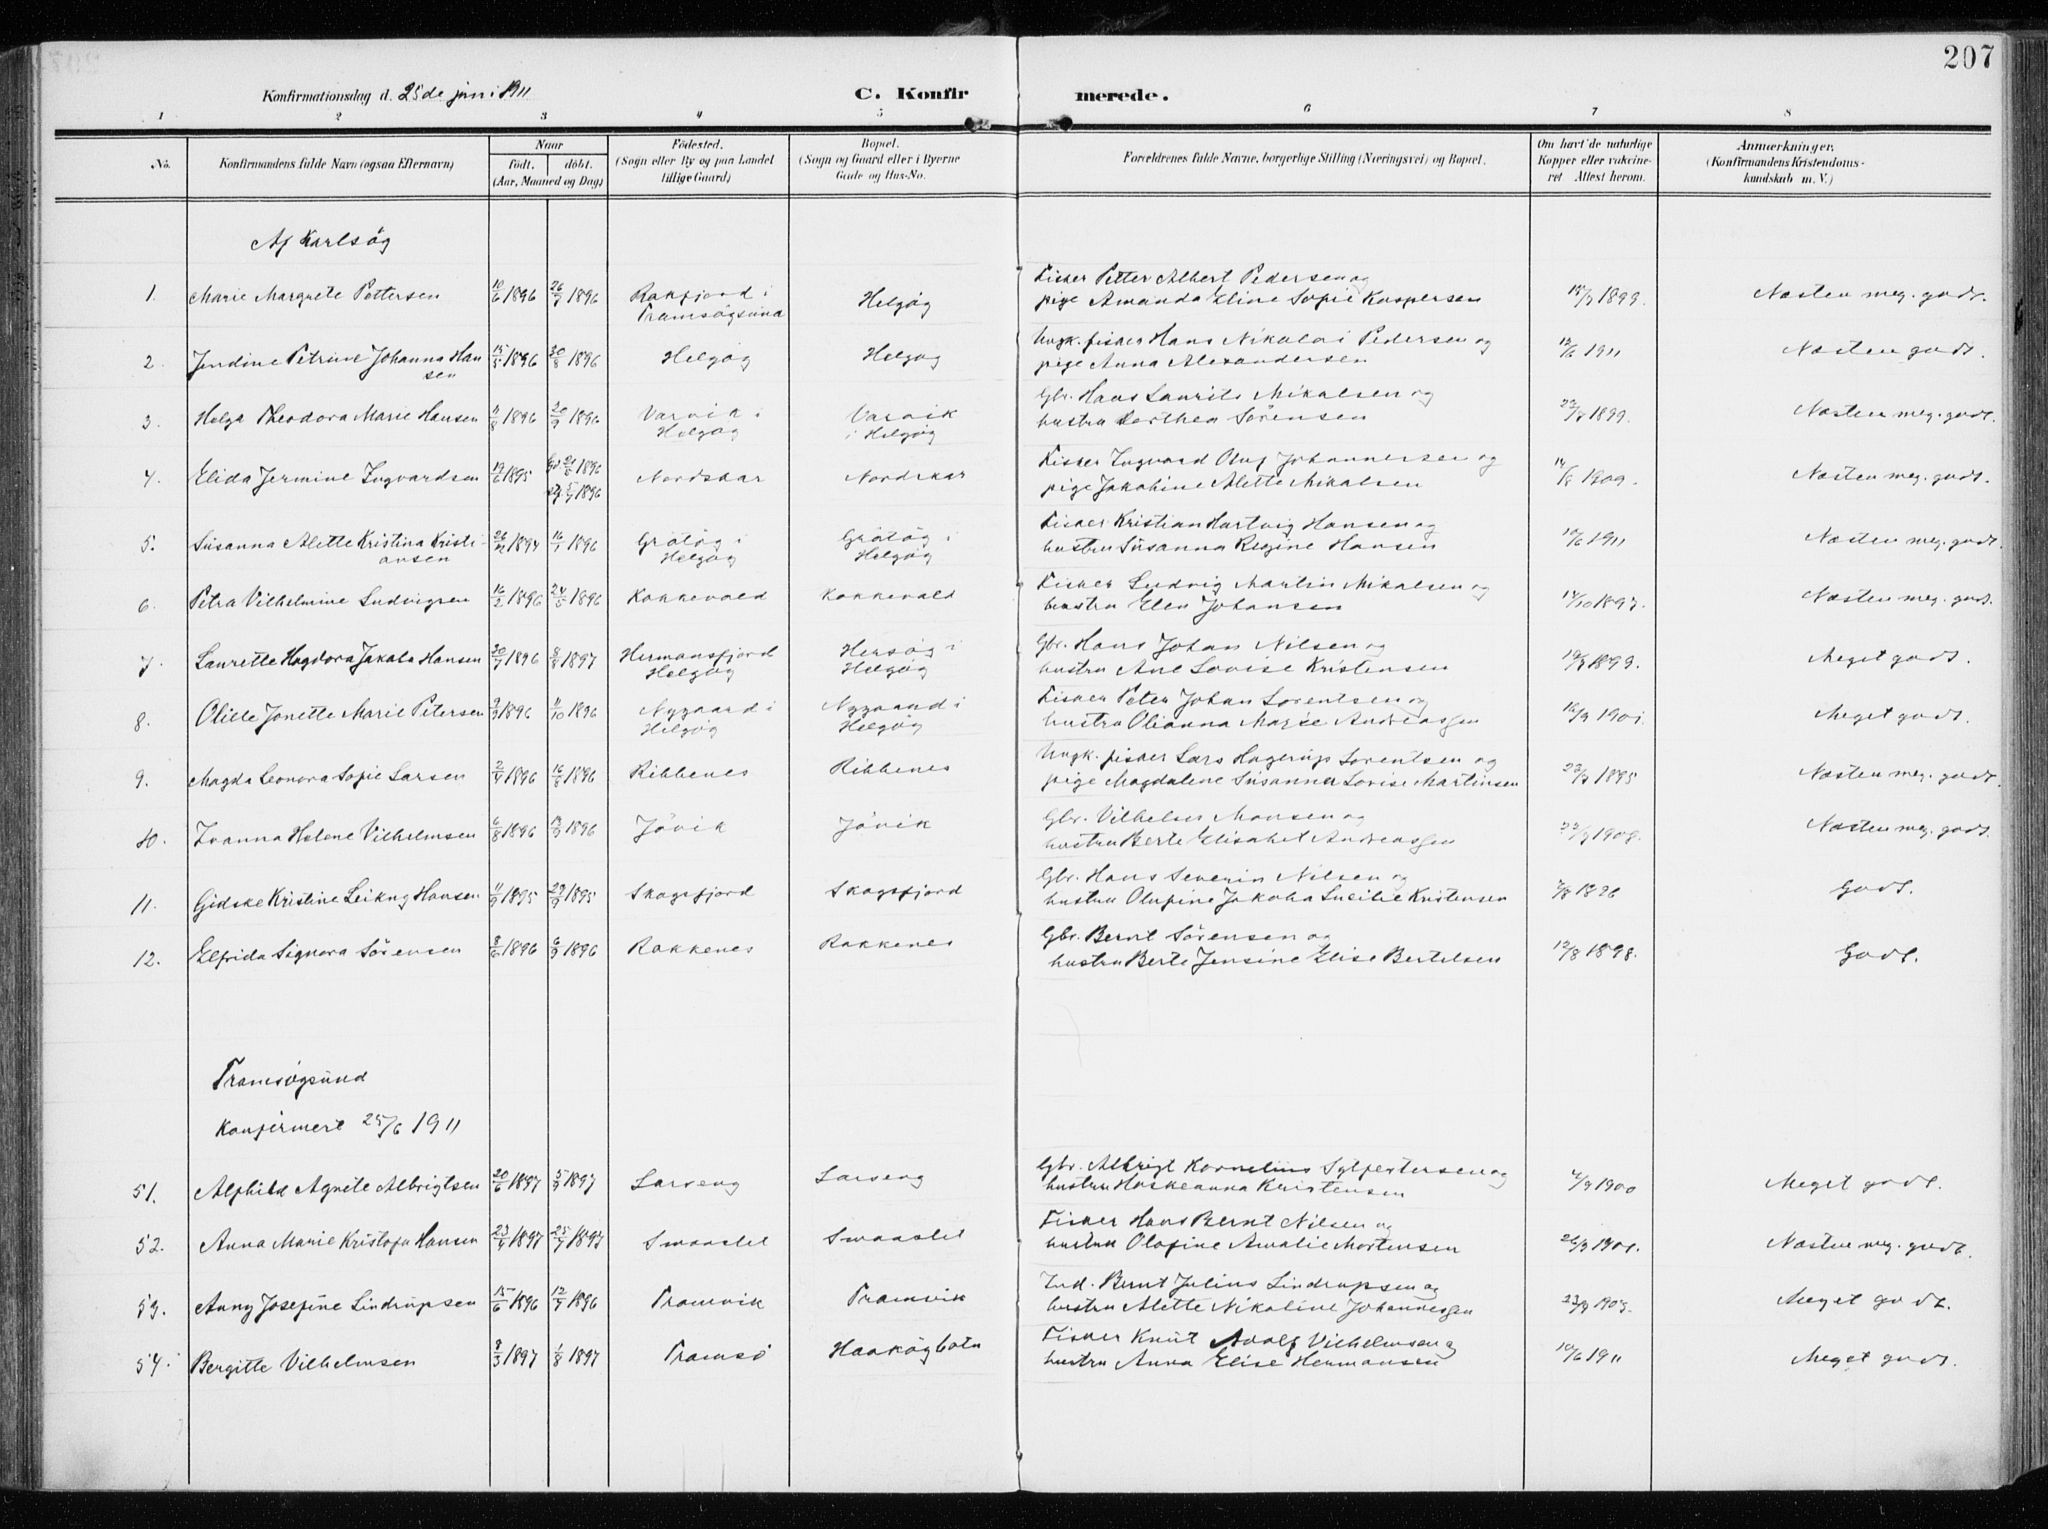 207
Konfirmationsdag d. 25de juni 1911 C. Konfirmerede.
1 2 3 4 5 6 7 8
No. Konfirmandens fulde Navn (ogsaa Efternavn) Naar Födt. döbt. (Aar, Maaned og Dag) Födested. (Sogn eller By og paa Landet tillige Gaard) Bopæl. (Sogn og Gaard eller i Byerne Gade og Hus-No. Forældrenes fulde Navne, borgerlige Stilling (Næringsvei) og Bopæl. Om havt de naturlige Kopper eller vakcineret Attest herom. Anmærkninger. (Konfirmandens Kristendomskundskab m. V.)
Af Karlsøg
1. Marie Margrete Pettersen 10/6 1896 26/7 1896 Rakfjord i Tromsøgsund Helgøg Fisker Petter Albert Pedersen og pige Amanda Eline Sofie Kaspersen 1899. Næsten meg. godt.
2. Jendine Petrine Johanna Hansen 15/5 1896 30/8 1896 Helgøg Helgøg Ungk. fisker Hans Nikolai Pedersen og pige Anna Alexandersen 12/6 1911 Næsten godt.
3. Helga Theodora Marie Hansen 11/8 1896 20/9 1896 Varvik i Helgøg Varvik i Helgøg Gbr. Hans Laurits Mikalsen og hustru Dorthea Sørensen 1899. Næsten meg. godt.
4. Elida Jermine Ingvardsen 19/6 1895 Gd 21/6 1896 stf. 5/7 1896 Nordskar Nordskar Fisker Ingvard Oluf Johannessen og pige Jakobine Alette Mikalsen 14/8 1909. Næsten meg. godt.
5. Susanna Alette Kristina Kristiansen 26/12 1894 16/1 1896 Grøtøg i Helgøg Grøtøg i Helgøg Fisker Kristian Hartvig Hansen og hustru Susanna Regine Hansen 10/6 1911 Næsten meg. godt.
6. Petra Vilhelmine Ludvigsen 16/2 1896 24/5 1896 Kokkevold Kokkevold Fisker Ludvig Martin Mikalsen og hustru Elen Johansen 14/10 1897. Næsten meg. godt.
7. Laurette Hagdora Jakoba Hansen 30/7 1896 8/8 1897 Hermansfjord Helgøg Hersøg i Helgøg Gbr. Hans Johan Nilsen og hustru Ane Lovise Kristensen 1899. Meget godt.
8. Olille Jonette Marie Petersen 2/3 1896 11/10 1896 Nygaard i Helgøg Nygaard i Helgøg Fisker Peter Johan Lorentsen og hustru Olianna Marie Andreassen 16/9 1901. Meget godt.
9. Magda Leonora Sofie Larsen 2/4 1896 16/8 1896 Ribbenes Ribbenes Ungk. fisker Lars Hagerup Lorentsen og pige Magdalene Susanna Lovise Martinsen 1895 Næsten meg. godt
10. Ivanna Helene Vilhelmsen 6/8 1896 13/9 1896 Jøvik Jøvik Gbr. Vilhelm Monsen og hustru Berte Elisabet Andreassen 1908. Næsten meg. godt.
11. Gidske Kristine Leikny Hansen 11/9 1895 29/9 1895 Skogsfjord Skogsfjord Gbr. Hans Severin Nilsen og hustru Olufine Jakoba Lucilie Kristensen 1896 Godt.
12. Elfrida Signora Sørensen 8/6 1896 6/9 1896 Rakkenes Rakkenes Gbr. Bernt Sørensen og hustru Berte Jensine Elise Bertelsen 12/8 1898. Godt.
Tromsøgsund
Konfirmert 25/6 1911
51. Alfhild Agnete Albrigtsen 20/6 1897 5/9 1897 Larseng Larseng Gbr. Albrigt Kornelius Sylfestersen og hustru Haskeanna Kristensen 4/9 1900 Meget godt.
52. Anna Marie Kristofa Hansen 23/4 1897 25/7 1897 Smaaslet Smaaslet Fisker Hans Bernt Nilsen og hustru Olufine Amalie Mortensen 26/9 1901. Næsten meg. godt.
53. Anny Josefine Lindrupsen 15/6 1896 12/7 1896 Tromvik Tromvik Ind. Bernt Julius Lindrupsen og hustru Alette Nikoline Johannessen 23/9 1903. Meget godt.
54. Bergitte Vilhelmsen 8/3 1897 1/8 1897 Tromsø Haakøgbotn Fisker Knut Adolf Vilhelmsen og hustru Anna Elise Hermansen 10/6 1911 Meget godt.